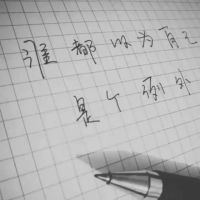 谁都以为自己
是个例外